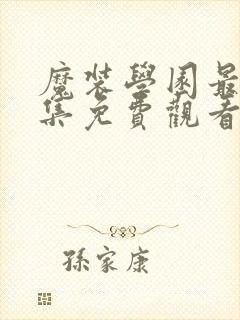 魔裝學園最
集免費觀看
孫家康